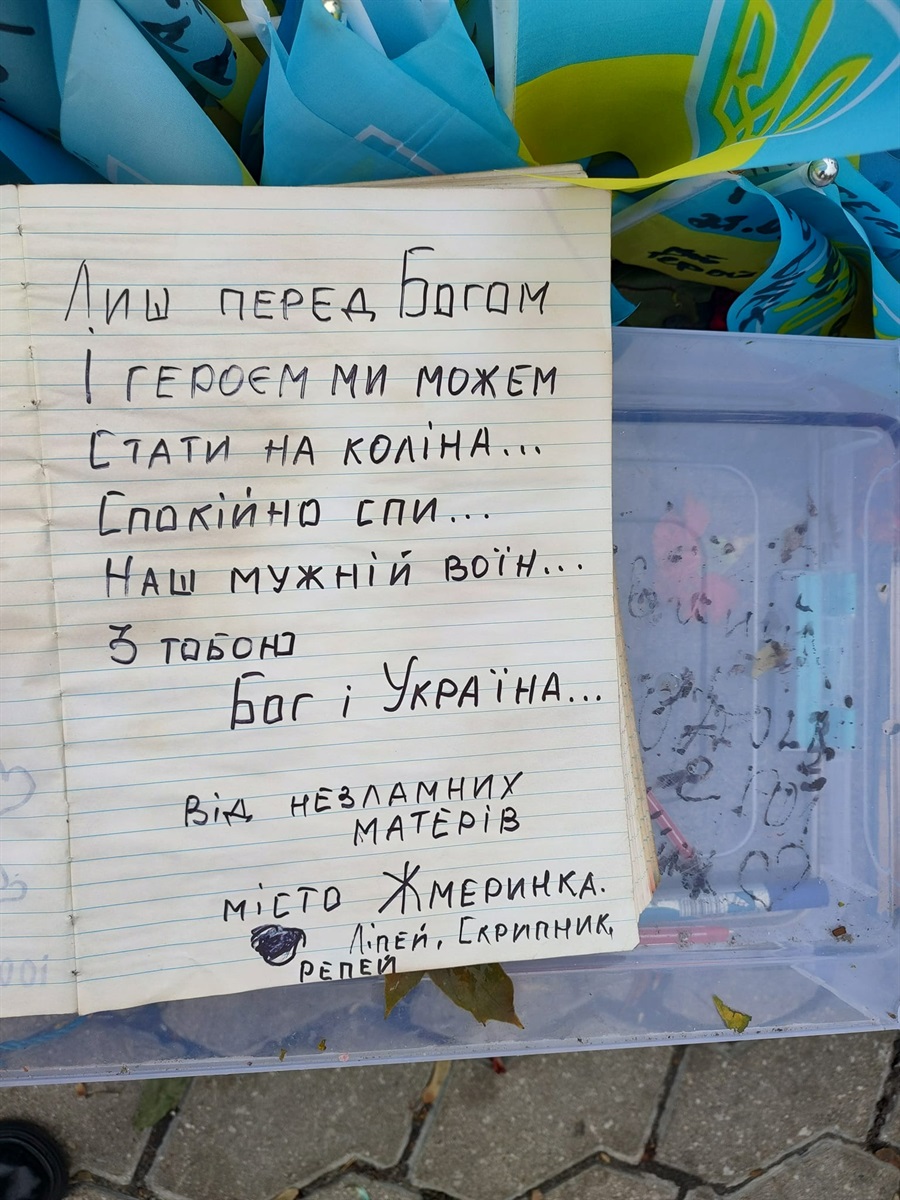 Лиш перед Богом
І героєм ми можем
Стати на коліна...
Спокійно спи...
Наш мужній воїн...
З тобою
Бог і Україна...
Від незламних
матерів
місто Жмеринка.
Ліпей, Скрипник,
Репей